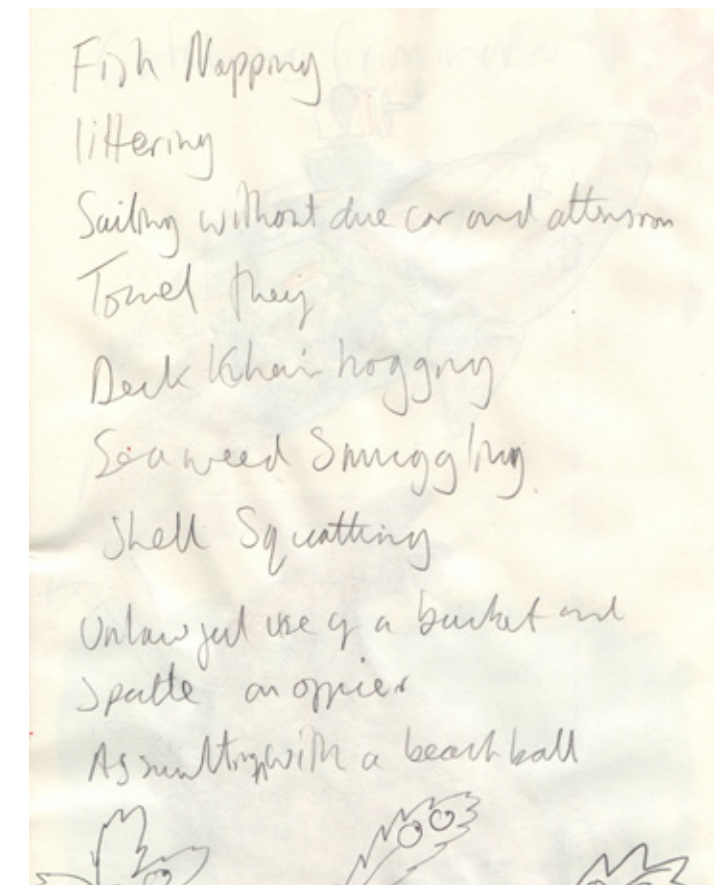 Fish Napping
littering
Sailing without due car and attension
Towel they
Deck Khair hoggng
Seaweed Smuggling
Shell Squatting
Unlawful use of a bucket and
Spatte an officer
Assulting with a beach ball